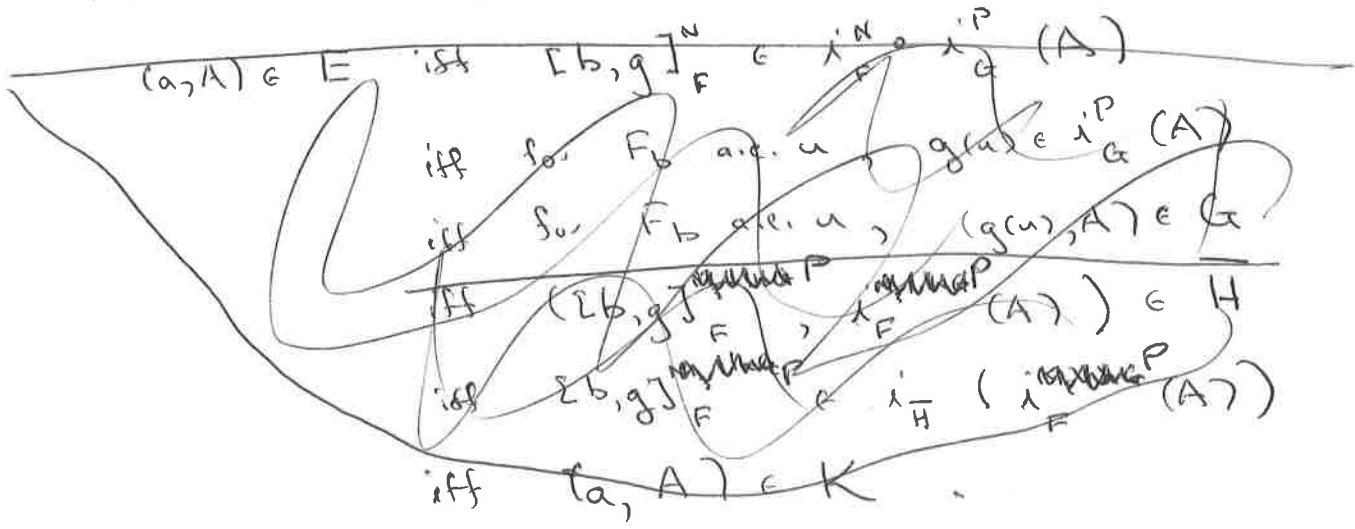 (a, A) ∈ E iff [b, g]^N_F ∈ i^N_F ∘ i^P_G (A)
iff for F_b a.e. u, g(u) ∈ i^P_G (A)
iff for F_b a.e. u, (g(u), A) ∈ G
iff ([b, g]^P_F, i^P_F (A)) ∈ H
iff [b, g]^P_F ∈ i_H (i^P_F (A))
iff (a, A) ∈ K.